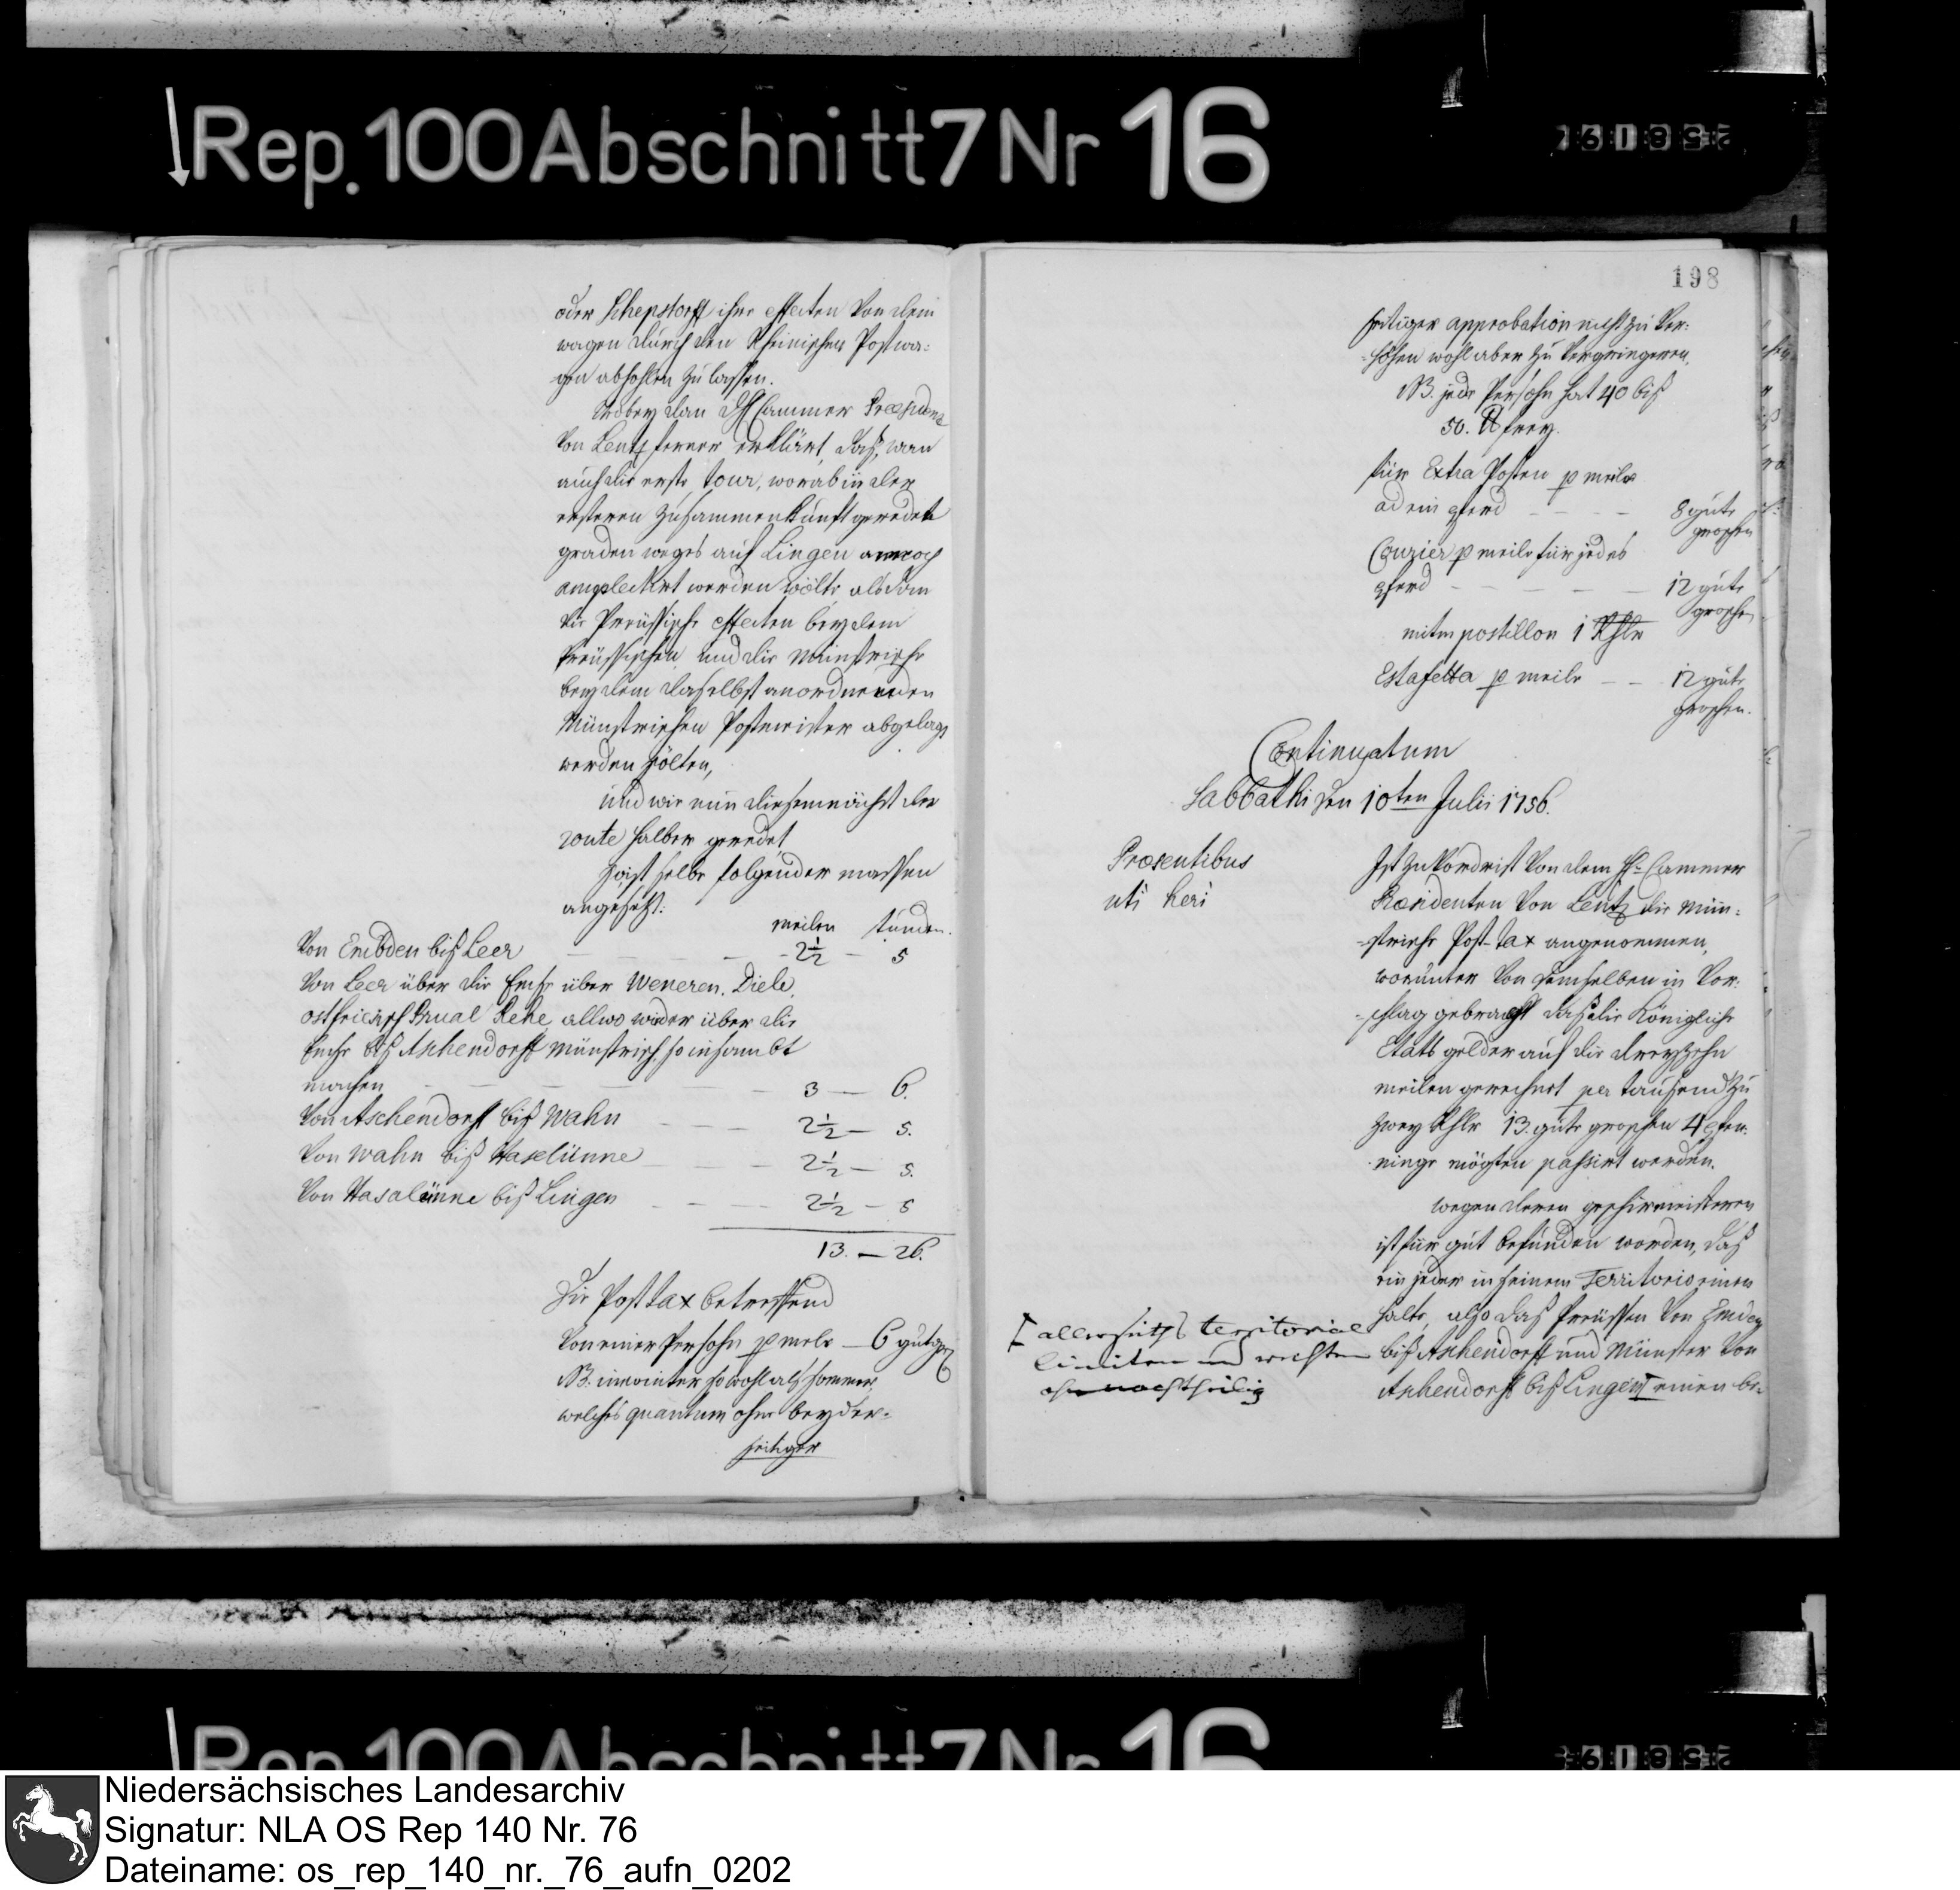 Rep. 100 Abschnitt 7 Nr 16
oder Schepstorff ihre effecten von dem
wagen durch den Rheinischen Postwa=
gen abhohlen zu lassen.
Wobey dan H Cammer Præsident
von Lentz ferner erklärt, daß, wan
auch die erste tour, worab in der
ersteren zusammenkunft geredet
graden weges auf Lingen annoch
amplectirt werden wolte alsdan
die Preüssische effecten bey dem
Preüssischen und die Münstrische
bey dem daselbst anordnenden
Münstrischen Postmeister abgelagt
werden sölten,
und wie nun diesemnächst der
route halber geredet
So ist selbe folgender massen
angesetzt:
meilen stunden.
Von Embden biß Leer — 2½ — 5
Von Leer über die Emse über Weneren, Diele,
ostfriesisch Brual Rehe allwo wieder über die
Emse biß Aschendorff Münstrisch, so insambt
machen — 3 — 6.
Von Aschendorff biß Wahn — 2½ — 5.
Von Wahn biß Haselünne — 2½ — 5.
Von Haselünne biß Lingen — 2½ — 5
13. — 26.
Die Post tax betreffend
Von einer Persohn p meile — 6 gute gr
NB. im winter so wohl als sommer,
welches quantum ohne beyder=
seitiger
198
seitiger approbation nicht zu ver=
=höhen wohl aber zu vergringeren.
NB. jede Persohn hat 40 biß
50. ℔ frey.
für Extra Posten p meile
ad ein pferd — 8 gute
groschen
Courier p meile für jedes
pferd — 12 gute
groschen
mitm postillon 1 Rthlr
Estafetta p meile — 12 gute
groschen.
Continuatum
Sabbathi den 10ten Julii 1756.
Præsentibus
uti heri
Ist zuvordrist von dem H. Cammer
Præsidenten von Lentz die Mün=
=strische Post-tax angenommen,
worunter von demselben in vor=
=schlag gebracht daß die Königliche
Etats gelder auf die dreyzehn
meilen gerechnet per tausend zu
zwey Rthlr 13. gute groschen 4 pfen=
ninge mögten passirt werden.
wegen deren geschirmeisteren
ist für gut befunden worden, daß
ein jeder in seinem Territorio einen
halte, also daß Preüssen von Emden
biß Aschendorff und Münster von
Aschendorff biß Lingen einen be=
allerseits territorial
limiten und rechten
ohnnachtheilig
Rep. 100 Abschnitt 7 Nr 16
Niedersächsisches Landesarchiv
Signatur: NLA OS Rep 140 Nr. 76
Dateiname: os_rep_140_nr._76_aufn_0202